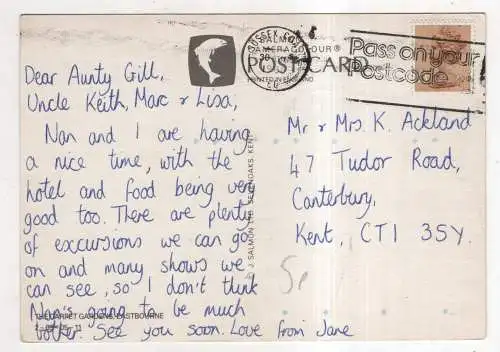 SUSSEX COAST
Pass on your
Postcode
SALMON
CAMERACOLOUR®
POSTCARD
PRINTED IN ENGLAND
Dear Aunty Gill,
Uncle Keith, Marc & Lisa,
Nan and I are having
a nice time, with the
hotel and food being very
good too. There are plenty
of excursions we can go
on and many shows we
can see, so I don't think
Nan's going to be much
bother. See you soon. Love from Jane
Mr & Mrs. K. Ackland
47 Tudor Road,
Canterbury,
Kent, CT1 3SY.
© J. SALMON LTD., SEVENOAKS, KENT
THE CARPET GARDENS, EASTBOURNE
5p